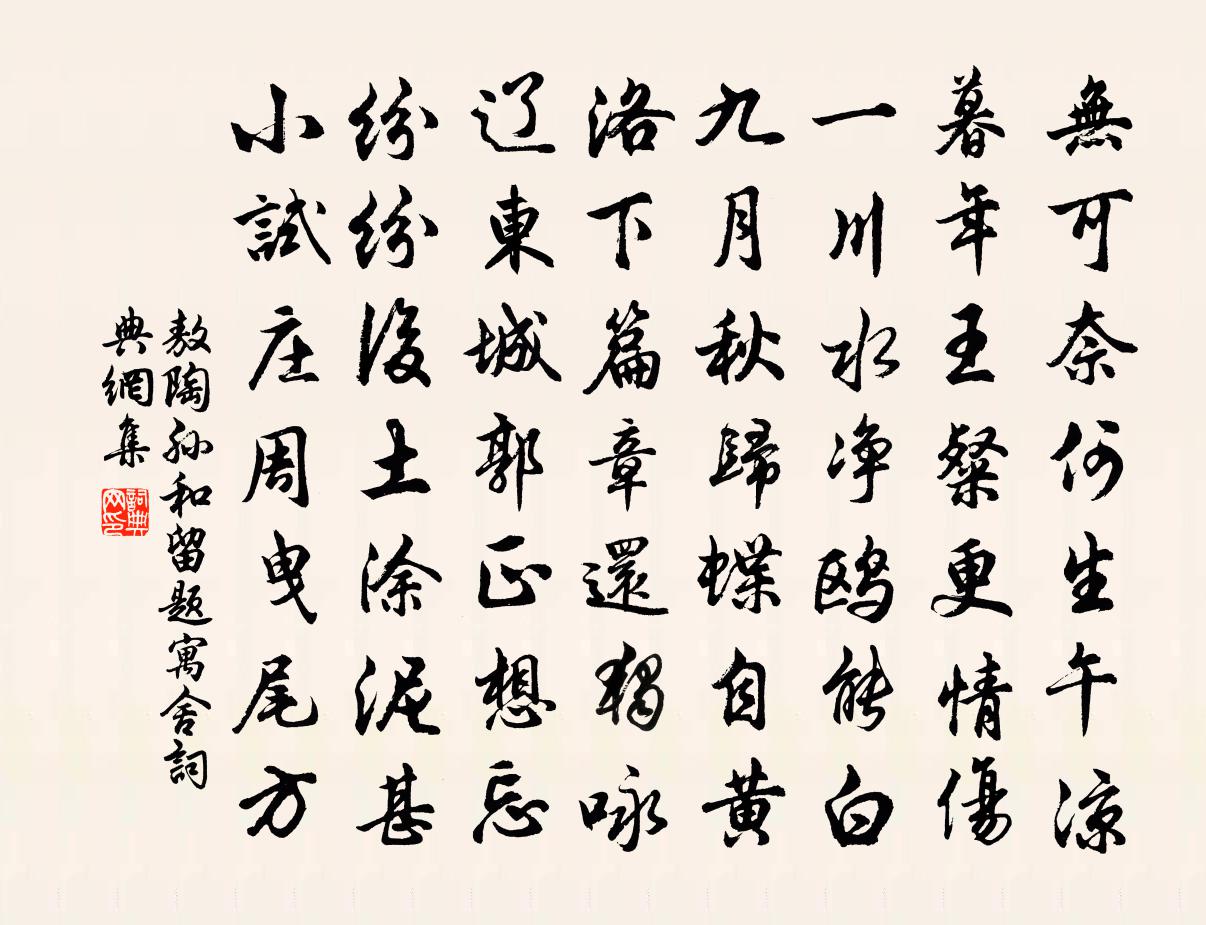 無可奈何生午凉
暮年王粲更情傷
一川水净鸥能白
九月秋歸蝶自黄
洛下篇章還獨咏
辽東城郭正想忘
纷纷後土涂泥甚
小試庄周曳尾方
敖陶孙和留题寓舍詞
典網集
詞典
网印